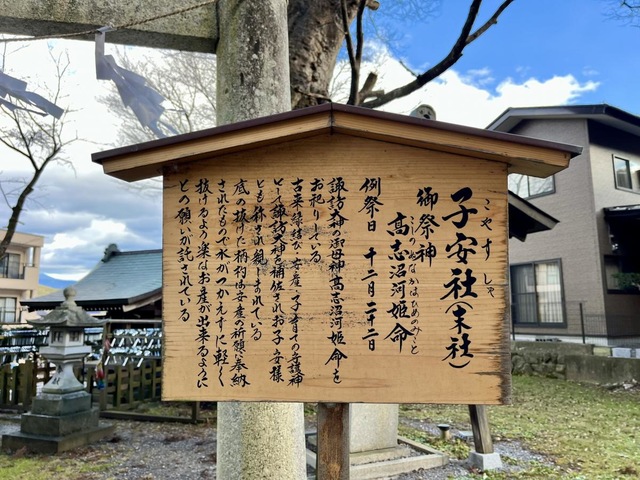 こやす しゃ
子安社(末社)
御祭神
高志沼河姫命
こしのぬなかはひめのみこと
例祭日 十二月二十二日
諏訪大神の御母神高志沼河姫命を
お祀りしている。
古来、縁結び・安産・子育ての守護神
として諏訪大神を補佐されお子安様
とも称され親しまれている
底の抜けた柄杓は安産の祈願で奉納
されたもので水がつかえずに軽く
抜けるように楽なお産が出来るように
との願いが託されている。